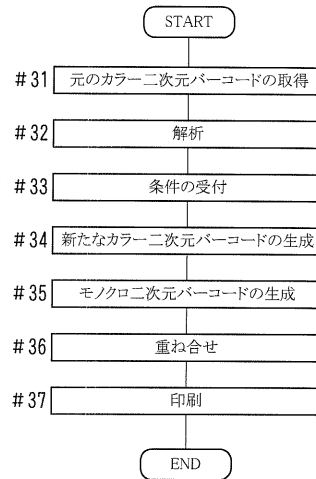 START
#31 元のカラー二次元バーコードの取得
#32 解析
#33 条件の受付
#34 新たなカラー二次元バーコードの生成
#35 モノクロ二次元バーコードの生成
#36 重ね合せ
#37 印刷
END